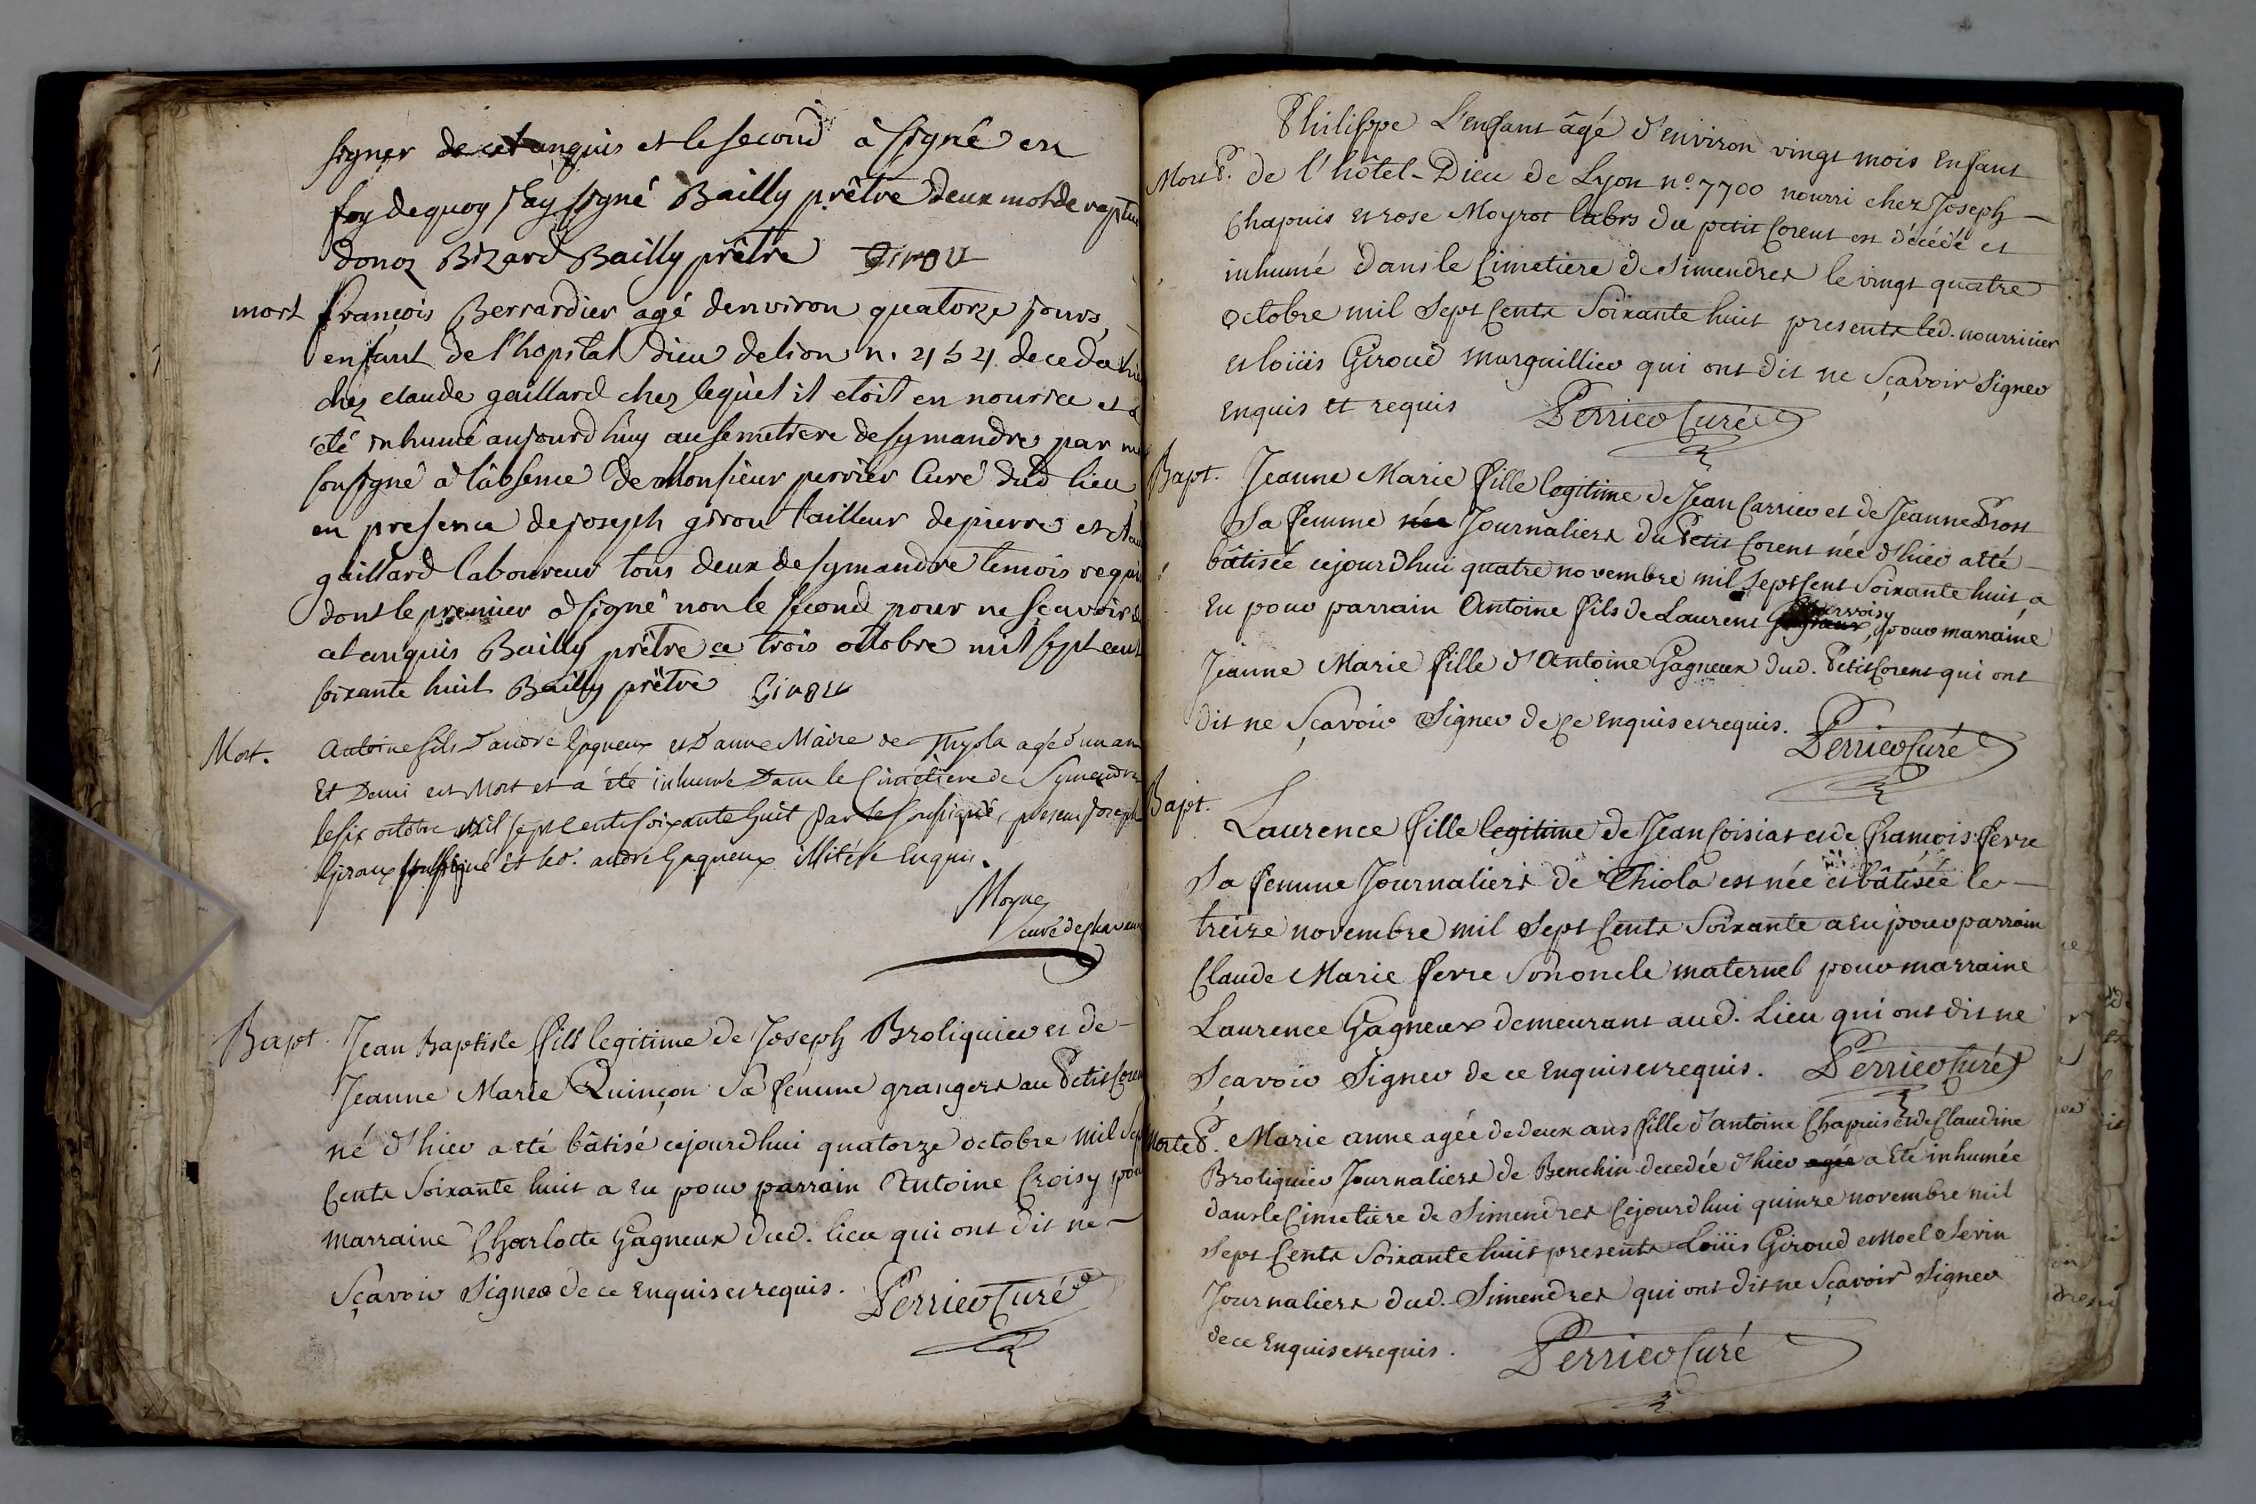 signer de cet anquis et le second à signé en
foy dequoy jay signé Bailly prêtre deux mots de
donoz Bizard Bailly prêtre Girou
mort françois Berrardier agé denviron quatorze jours,
enfant de l'hopital dieu de lion n. decedé hie
chez claude gaillard chez lequel il etoit en nourice et a
été inhumé aujourdhuy au semetiere de symandre par
sousigné à l'absence de Monsieur perrier Curé dud lieu
en presence de joseph girou tailleur de pierre et
gaillard laboureur tous deux de symandre temois requi
dont le premier a signé non le second pour ne sçavoir de
cet anquis Bailly prêtre ce trois ottobre mil sept cent
soixante huit Bailly prêtre Girou
Mort. Antoine fils d'andré Gagneux et d'anne Maire de Thyola agé d'un an
Et Demi est Mort et a été inhumé Dans le Cimetiere de Symandre
le six octobre mil sept cents soixante huit par le soussigné, presens joseph
Giraux soussigné et led. andré Gagneux illitéré Enquis.
Moyne
curé de
Bapt. Jean Baptiste fils legitime de Joseph Broliquier et de
Jeanne Marie Quinçon Sa femme grangers au Petit Coren
né d'hier a eté bâtisé cejourdhui quatorze octobre mil Sep
Cents Soixante huit a eu pour parrain Antoine Croisy pou
marraine Charlotte Gagneux dud. lieu qui ont dit ne
Sçavoir Signer de ce Enquis et requis. Perrier Curé
Philippe L'enfant âgé d'environ vingt mois Enfant
Mort P. de l'hôtel-Dieu de Lyon n.º 7700 nourri chez Joseph
Chapuis et rose Moyrot labrs du petit Corent est décédé et
inhumé dans le Cimetiere de Simendres le vingt quatre
octobre mil Sept Cents Soixante huit presents led. nourricier
et loüis Giroud marguillier qui ont dit ne Sçavoir Signer
Enquis et requis Perrier Curé
Bapt. Jeanne Marie fille legitime de Jean Carrier et de Jeanne Prost
Sa femme née Journaliers du Petit Corent née d'hier a été
bâtisée cejourdhui quatre novembre mil Sept Cent Soixante huit a
Eu pour parrain Antoine fils de Laurent pour marraine
Jeanne Marie fille d'Antoine Gagneux dud. Petit Corent qui ont
dit ne Sçavoir Signer de Ce Enquis et requis. Perrier Curé
Bapt. Laurence fille legitime de Jean Coisiat et de françoise ferre
Sa femme Journaliers de Thiola est née et bâtisée le
treize novembre mil Sept Cents Soixante a eu pour parrain
Claude Marie ferre Son oncle maternel pour marraine
Laurence Gagneux demeurant aud. Lieu qui ont dit ne
Sçavoir Signer de ce Enquis et requis. Perrier Curé
Morte P. Marie anne agée de deux ans fille d'antoine Chapuis et de Claudine
Broliquier Journaliers de Benchin decedée d'hier agée a Eté inhumée
dans le Cimetiere de Simendres Cejourdhui quinze novembre mil
Sept Cents Soixante huit presents Loüis Giroud et Noel Sevin
Journaliers dud. Simendres qui ont dit ne Sçavoir Signer
de ce Enquis et requis. Perrier Curé